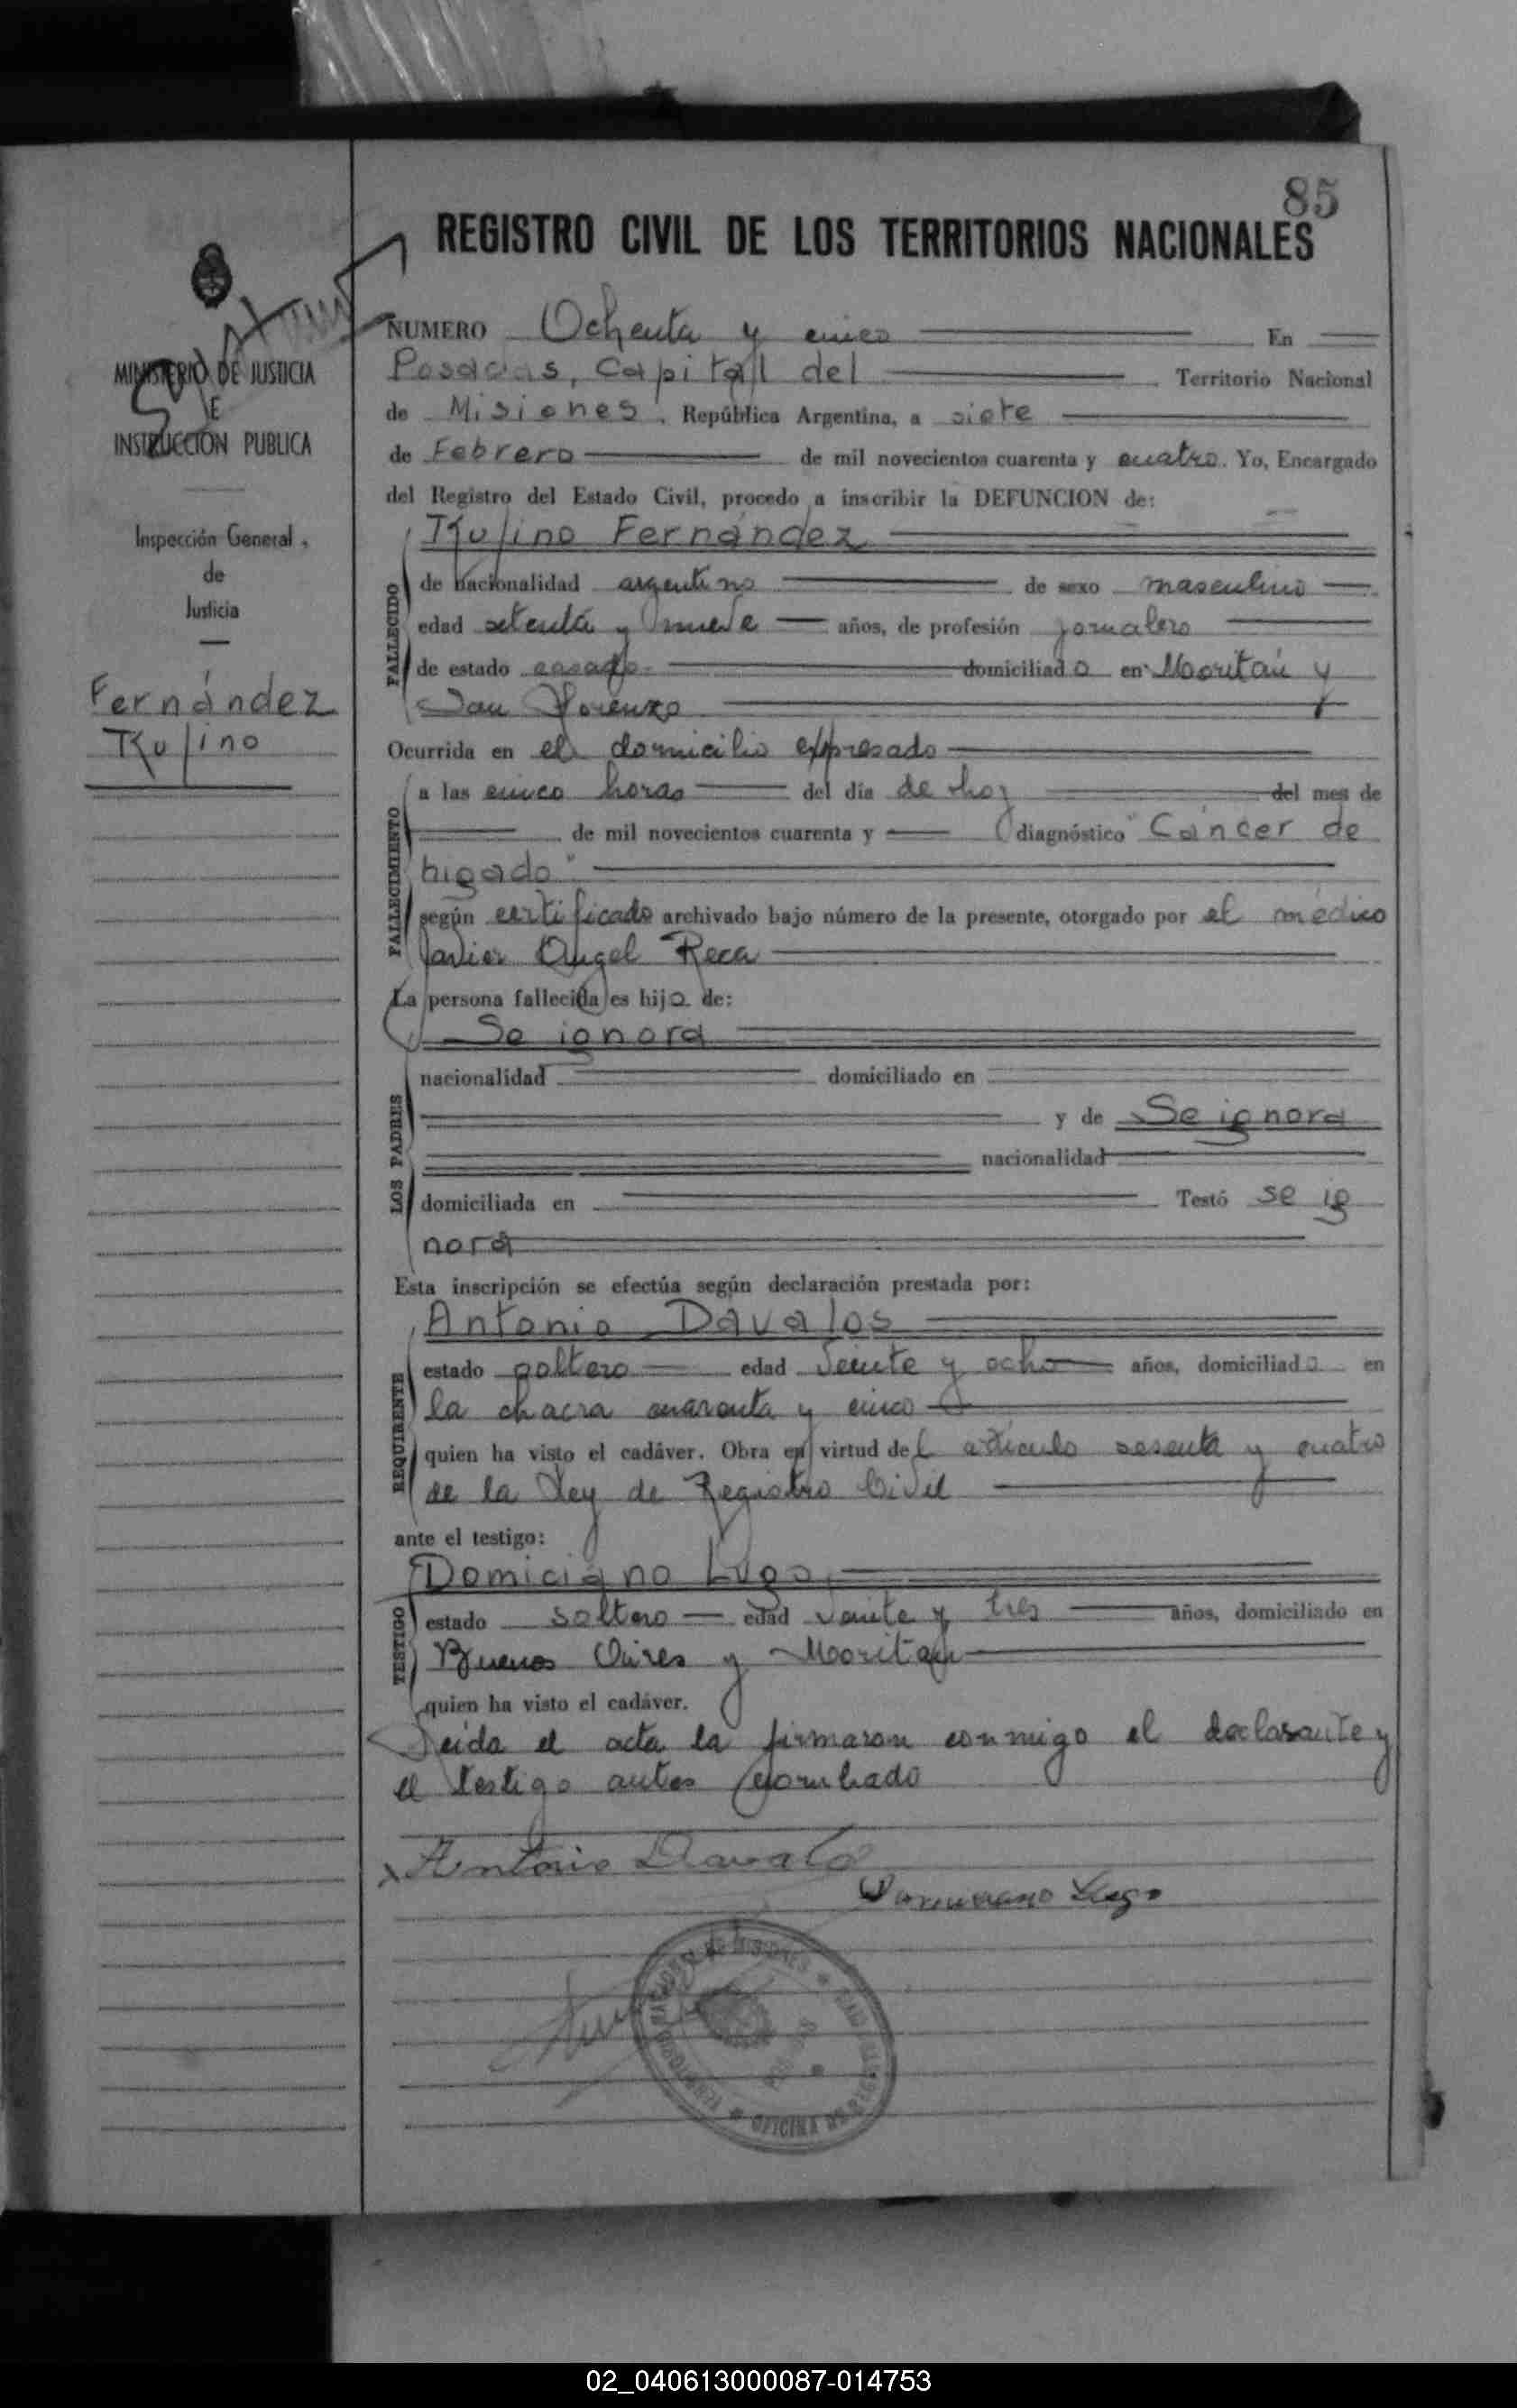 85
REGISTRO CIVIL DE LOS TERRITORIOS NACIONALES
MINISTERIO DE JUSTICIA
E
INSTRUCCION PUBLICA
Inspección General
de
Justicia
Fernández
Rufino
NUMERO Ochenta y cinco En
Posadas, Capital del Territorio Nacional
de Misiones, República Argentina, a siete
de Febrero de mil novecientos cuarenta y cuatro. Yo, Encargado
del Registro del Estado Civil, procedo a inscribir la DEFUNCION de:
Rufino Fernández
FALLECIDO
de nacionalidad argentino de sexo masculino
edad setenta y nueve años, de profesión jornalero
de estado casado domiciliado en Moritán y
San Lorenzo
Ocurrida en el domicilio expresado
FALLECIMIENTO
a las cinco horas del día de hoy del mes de
de mil novecientos cuarenta y diagnóstico "Cáncer de
higado"
según certificado archivado bajo número de la presente, otorgado por el médico
Javier Angel Reca
La persona fallecida es hijo de:
LOS PADRES
Se ignora
nacionalidad domiciliado en
y de Se ignora
nacionalidad
domiciliada en Testó se ig
nora
Esta inscripción se efectúa según declaración prestada por:
REQUIRENTE
Antonio Davalos
estado soltero edad veinte y ocho años, domiciliado en
la chacra cuarenta y cinco
quien ha visto el cadáver. Obra en virtud del artículo sesenta y cuatro
de la Ley de Registro Civil
ante el testigo:
TESTIGO
Domiciano Lugo
estado soltero edad veinte y tres años, domiciliado en
Buenos Aires y Moritán
quien ha visto el cadáver.
Leida el acta la firmaron conmigo el declarante y
el testigo antes nombrado
Antonio Davalo
Domiciano Lugo
OFICINA
02_040613000087-014753